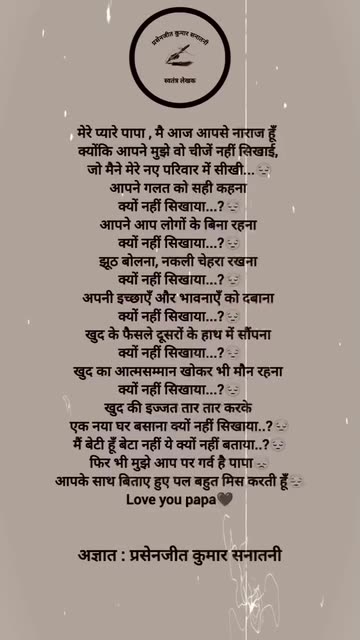 प्रसेनजीत कुमार सनातनी
स्वतंत्र लेखक
मेरे प्यारे पापा , मै आज आपसे नाराज हूँ
क्योंकि आपने मुझे वो चीजें नहीं सिखाई,
जो मैने मेरे नए परिवार में सीखी...😔
आपने गलत को सही कहना
क्यों नहीं सिखाया...?😔
आपने आप लोगों के बिना रहना
क्यों नहीं सिखाया...?😔
झूठ बोलना, नकली चेहरा रखना
क्यों नहीं सिखाया...?😔
अपनी इच्छाएँ और भावनाएँ को दबाना
क्यों नहीं सिखाया...?😔
खुद के फैसले दूसरों के हाथ में सौंपना
क्यों नहीं सिखाया...?😔
खुद का आत्मसम्मान खोकर भी मौन रहना
क्यों नहीं सिखाया...?😔
खुद की इज्जत तार तार करके
एक नया घर बसाना क्यों नहीं सिखाया..?😔
मैं बेटी हूँ बेटा नहीं ये क्यों नहीं बताया..?😔
फिर भी मुझे आप पर गर्व है पापा😔
आपके साथ बिताए हुए पल बहुत मिस करती हूँ😔
Love you papa🖤
अज्ञात : प्रसेनजीत कुमार सनातनी